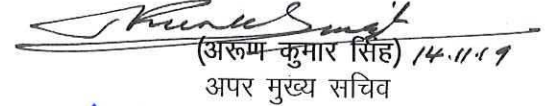 (अरूण कुमार सिंह) 14.11.19
अपर मुख्य सचिव